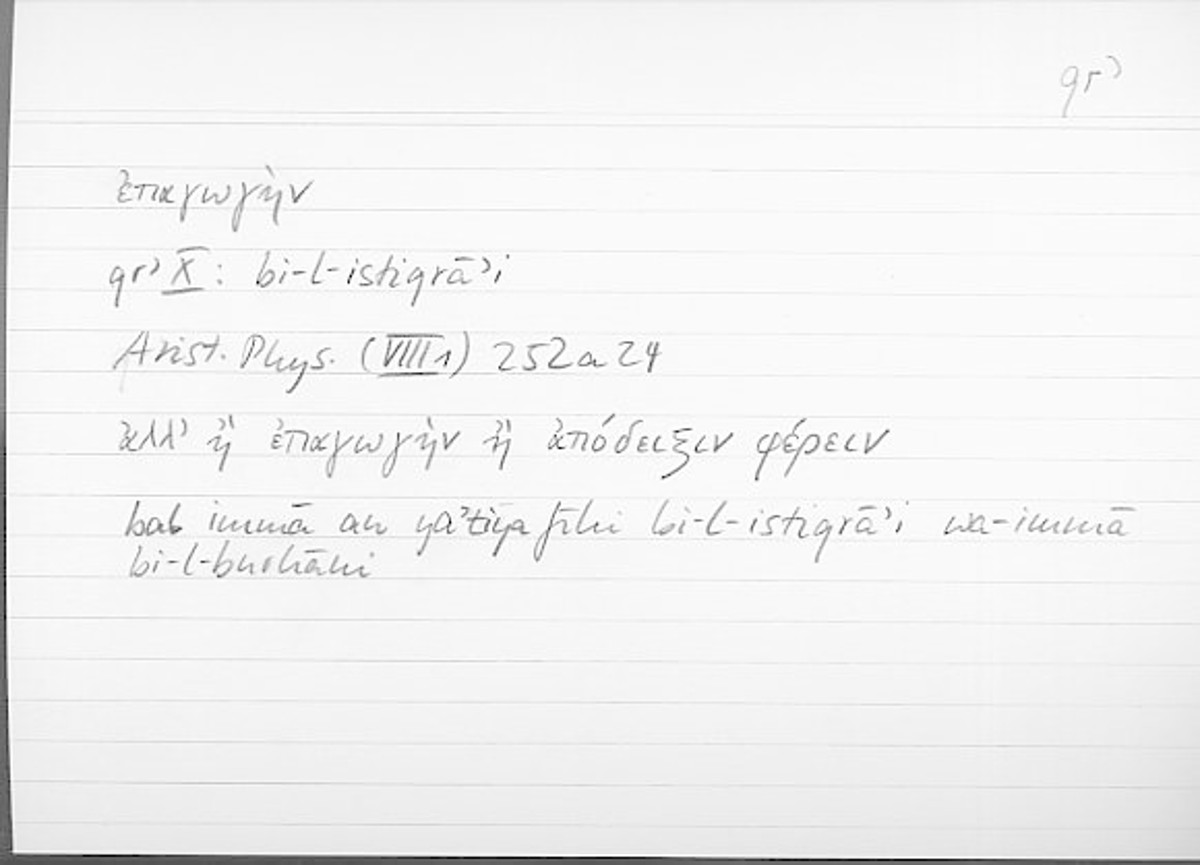 qrʾ
ἐπαγωγὴν
qrʾ X: bi-l-istiqrāʾi
Arist. Phys. (VIII 1) 252a24
ἀλλʼ ἢ ἐπαγωγὴν ἢ ἀπόδειξιν φέρειν
bal immā an yaʾtiya fīhi bi-l-istiqrāʾi wa-immā
bi-l-burhāni